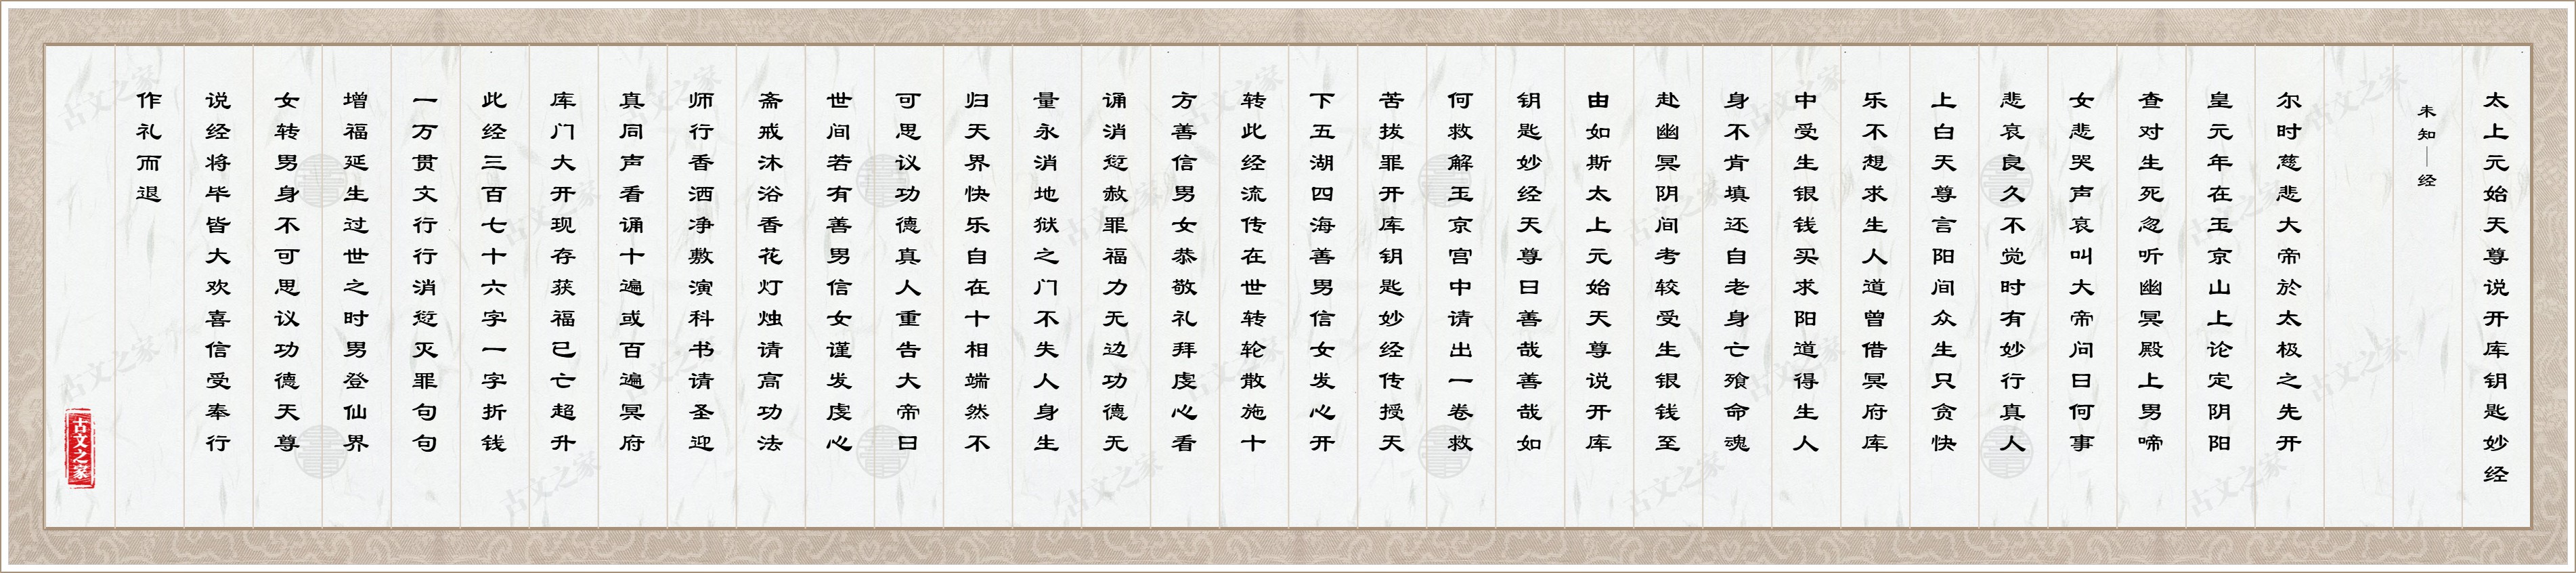 太上元始天尊说开库钥匙妙经
未知｜经
尔时慈悲大帝於太极之先开
皇元年在玉京山上论定阴阳
查对生死忽听幽冥殿上男啼
女悲哭声哀叫大帝问曰何事
悲哀良久不觉时有妙行真人
上白天尊言阳间众生只贪快
乐不想求生人道曾借冥府库
中受生银钱买求阳道得生人
身不肯填还自老身亡飱命魂
赴幽冥阴间考较受生银钱至
由如斯太上元始天尊说开库
钥匙妙经天尊曰善哉善哉如
何救解玉京宫中请出一卷救
苦拔罪开库钥匙妙经传授天
下五湖四海善男信女发心开
转此经流传在世转轮散施十
方善信男女恭敬礼拜虔心看
诵消愆赦罪福力无边功德无
量永消地狱之门不失人身生
归天界快乐自在十相端然不
可思议功德真人重告大帝曰
世间若有善男信女谨发虔心
斋戒沐浴香花灯烛请高功法
师行香洒净敷演科书请圣迎
真同声看诵十遍或百遍冥府
库门大开现存获福已亡超升
此经三百七十六字一字折钱
一万贯文行行消愆灭罪句句
增福延生过世之时男登仙界
女转男身不可思议功德天尊
说经将毕皆大欢喜信受奉行
作礼而退
古文之家